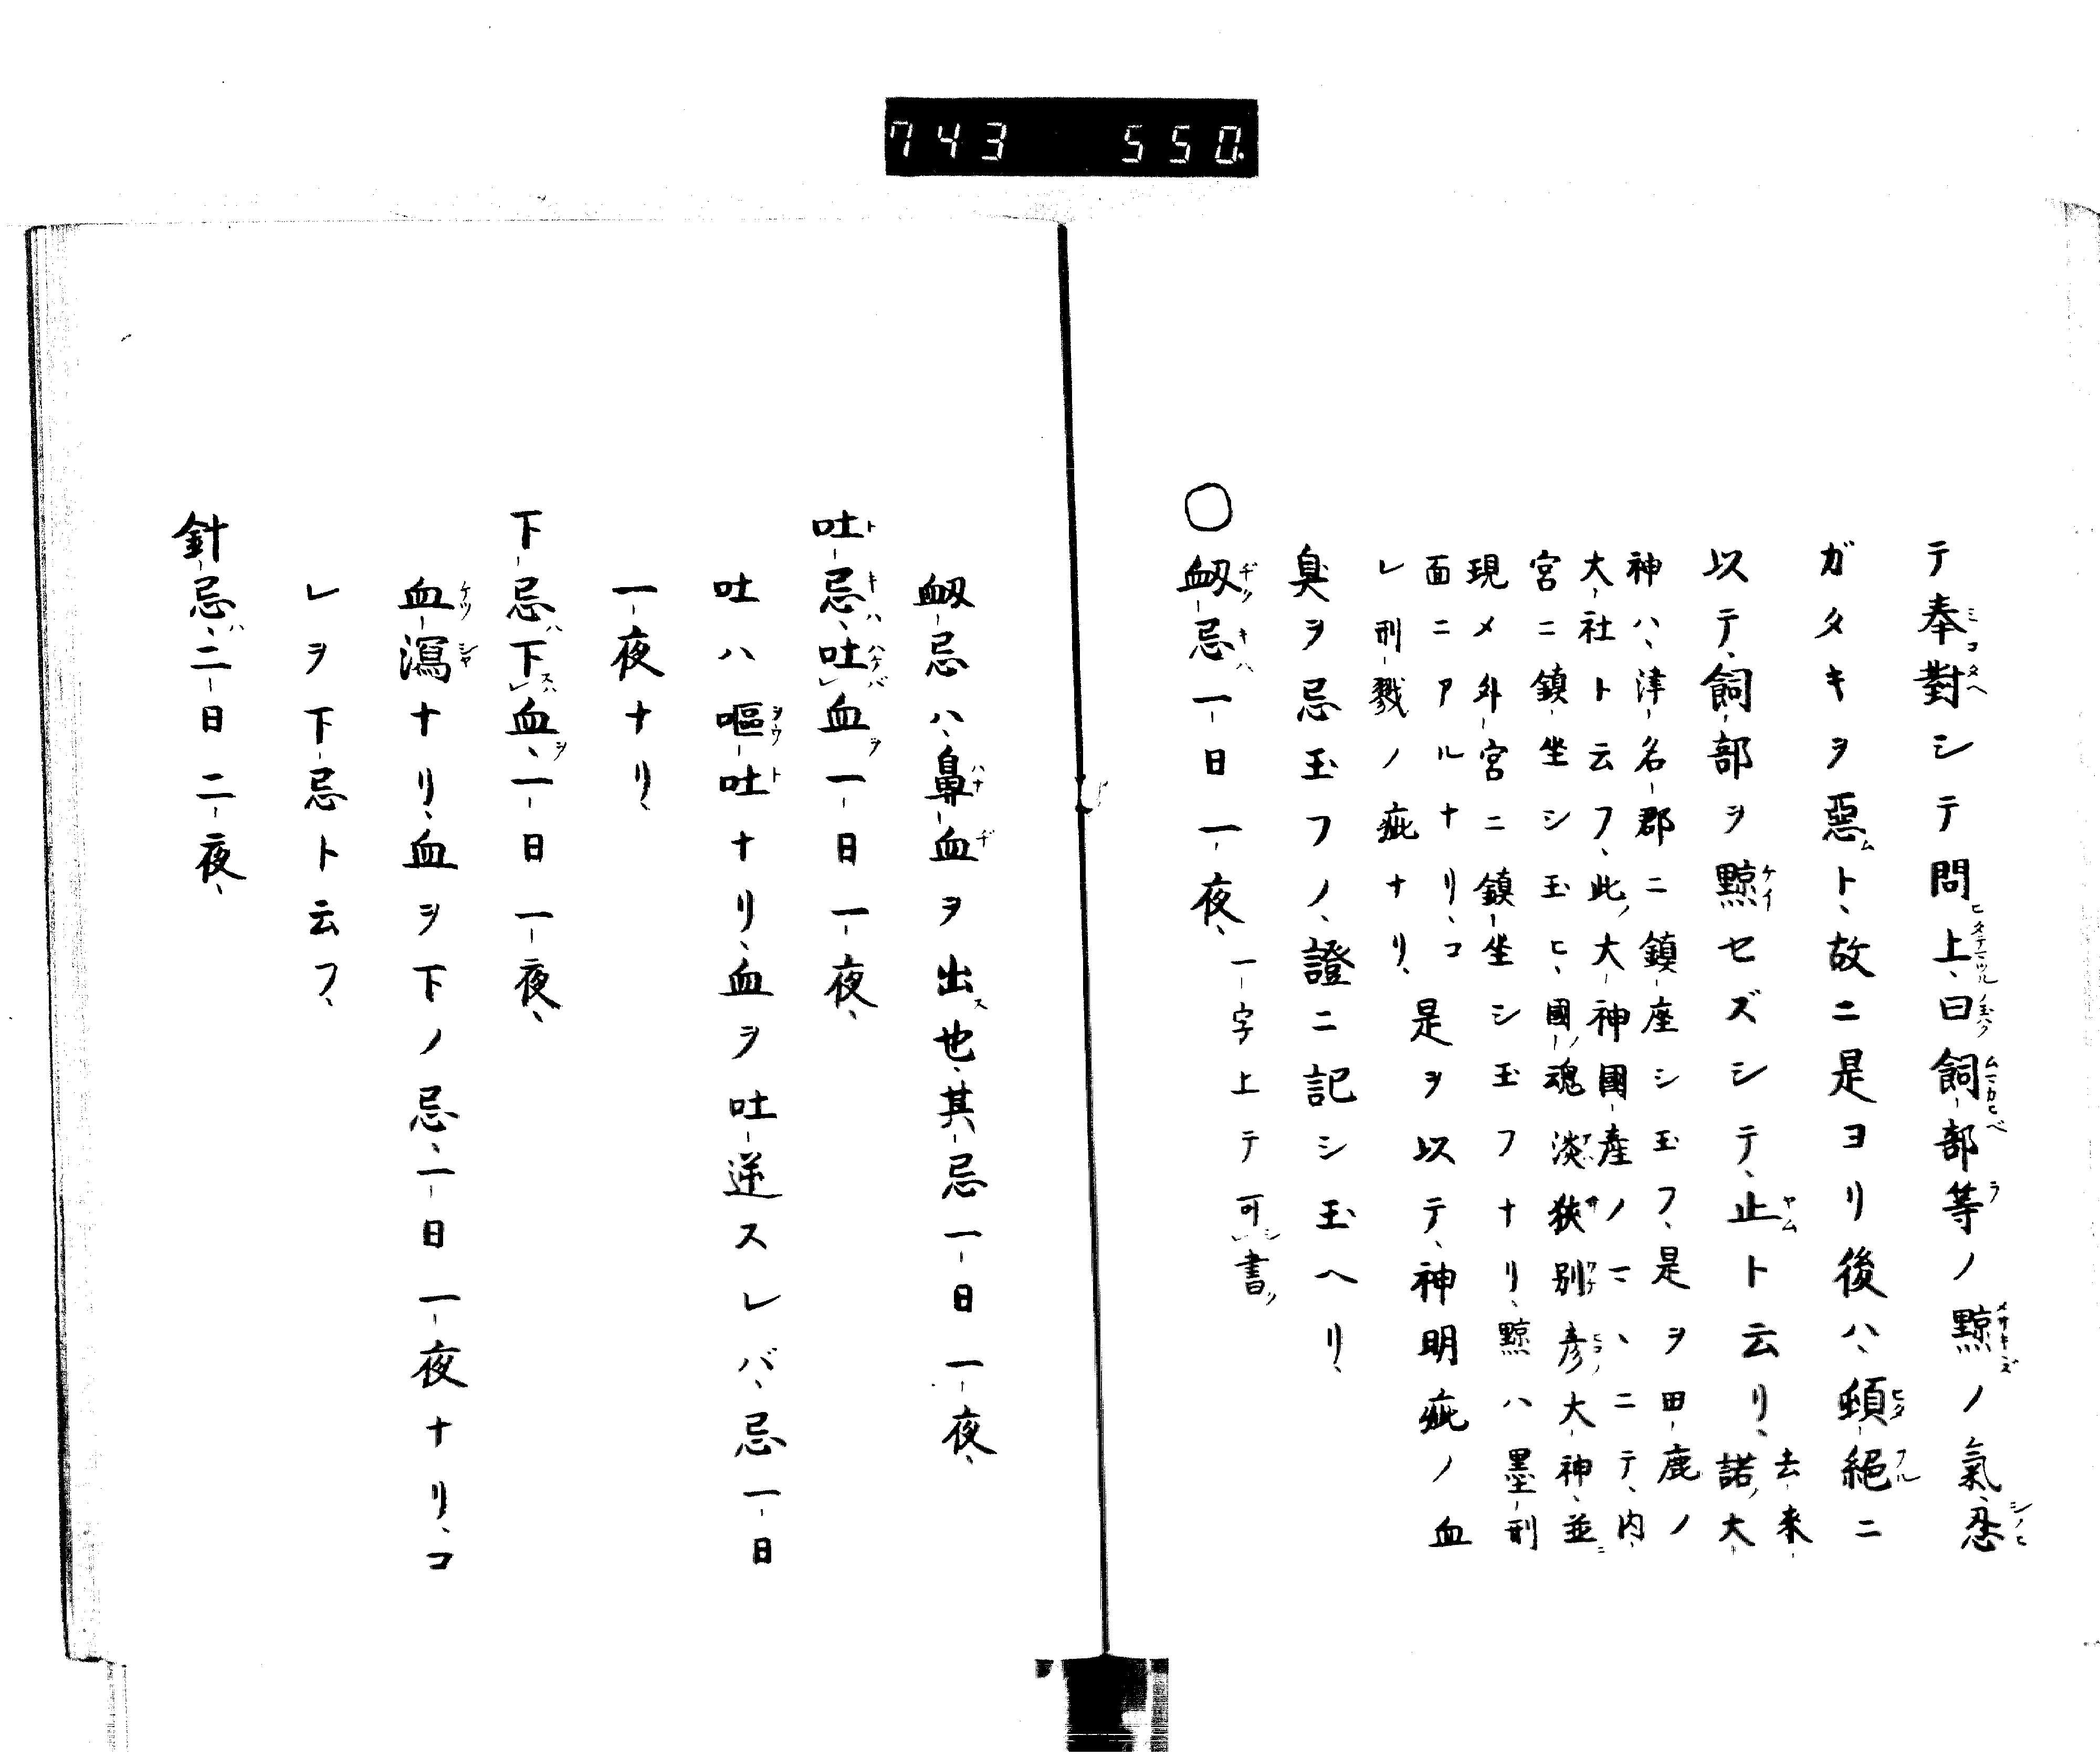 743 550
テ奉對シテ問上、曰飼部等ノ黥ノ氣、忍
ガタキヲ惡ト、故ニ是ヨリ後ハ、頓絕ニ
以テ、飼部ヲ黥セズシテ、止ト云リ、去来
諾大
神ハ、津名郡ニ鎮座シ玉フ、是ヲ田鹿ノ
大社ト云フ、此大神國産ノマヽニテ、内
宮ニ鎮坐シ玉ヒ、國魂淡狹別彦大神、並
現メ外宮ニ鎮坐シ玉フナリ、黥ハ墨刑
面ニアルナリ、コ
レ刑戮ノ疵ナリ、
是ヲ以テ、神明疵ノ血
臭ヲ忌玉フノ、證ニ記シ玉ヘリ、
〇衂忌一日一夜、一字上テ可書
衂忌ハ、鼻血ヲ出也、其忌一日一夜、
吐忌、吐血一日一夜、
吐ハ嘔吐ナリ、血ヲ吐逆スレバ、忌一日
一夜ナリ、
下忌下血、一日一夜、
血瀉ナリ、血ヲ下ノ忌、一日一夜ナリ、コ
レヲ下忌ト云フ、
針忌、二日二夜、